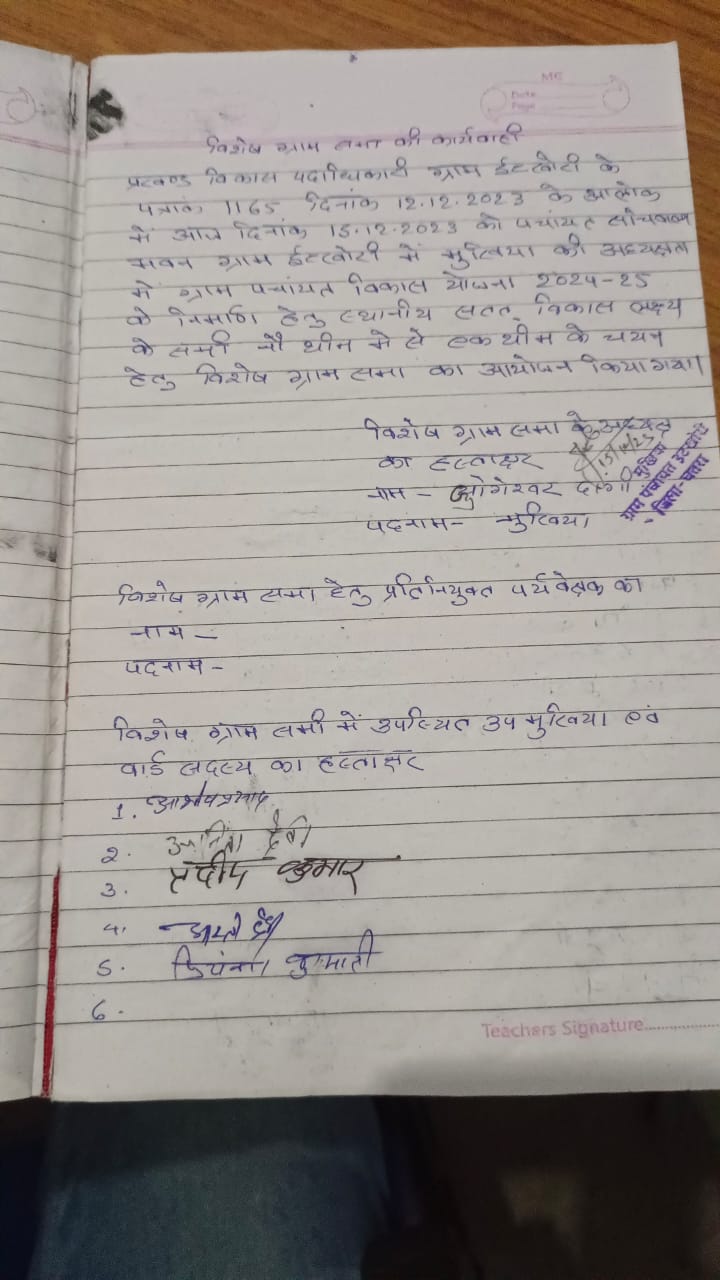 ME
Date
Page
विशेष ग्राम सभा की कार्यवाही
प्रखण्ड विकास पदाधिकारी ग्राम ईटखोरी के
पत्रांक 1165 दिनांक 12.12.2023 के आलोक
में आज दिनांक 15.12.2023 को पचांयत
भवन ग्राम ईटखोरी में मुखिया की अध्यक्षता
में ग्राम पचांयत विकास योजना 2024-25
के निर्माण हेतु स्थानीय सतत् विकास लक्ष्य
के सभी नौ थीम में से एक थीम के चयन
हेतु विशेष ग्राम सभा का आयोजन किया गया।
विशेष ग्राम सभा के अध्यक्ष
का हस्ताक्षर
15/12/23
नाम -
पदनाम- मुखिया
मुखिया
ग्राम पंचायत इटखोरी
जिला-चतरा
विशेष ग्राम सभा हेतु प्रतिनियुक्त पर्यवेक्षक का
नाम -
पदनाम -
विशेष ग्राम सभी में उपस्थित उप मुखिया एवं
वार्ड सदस्य का हस्ताक्षर
1.
2. देवी
3. संदीप कुमार
4.
5. कुमारी
6.
Teachers Signature